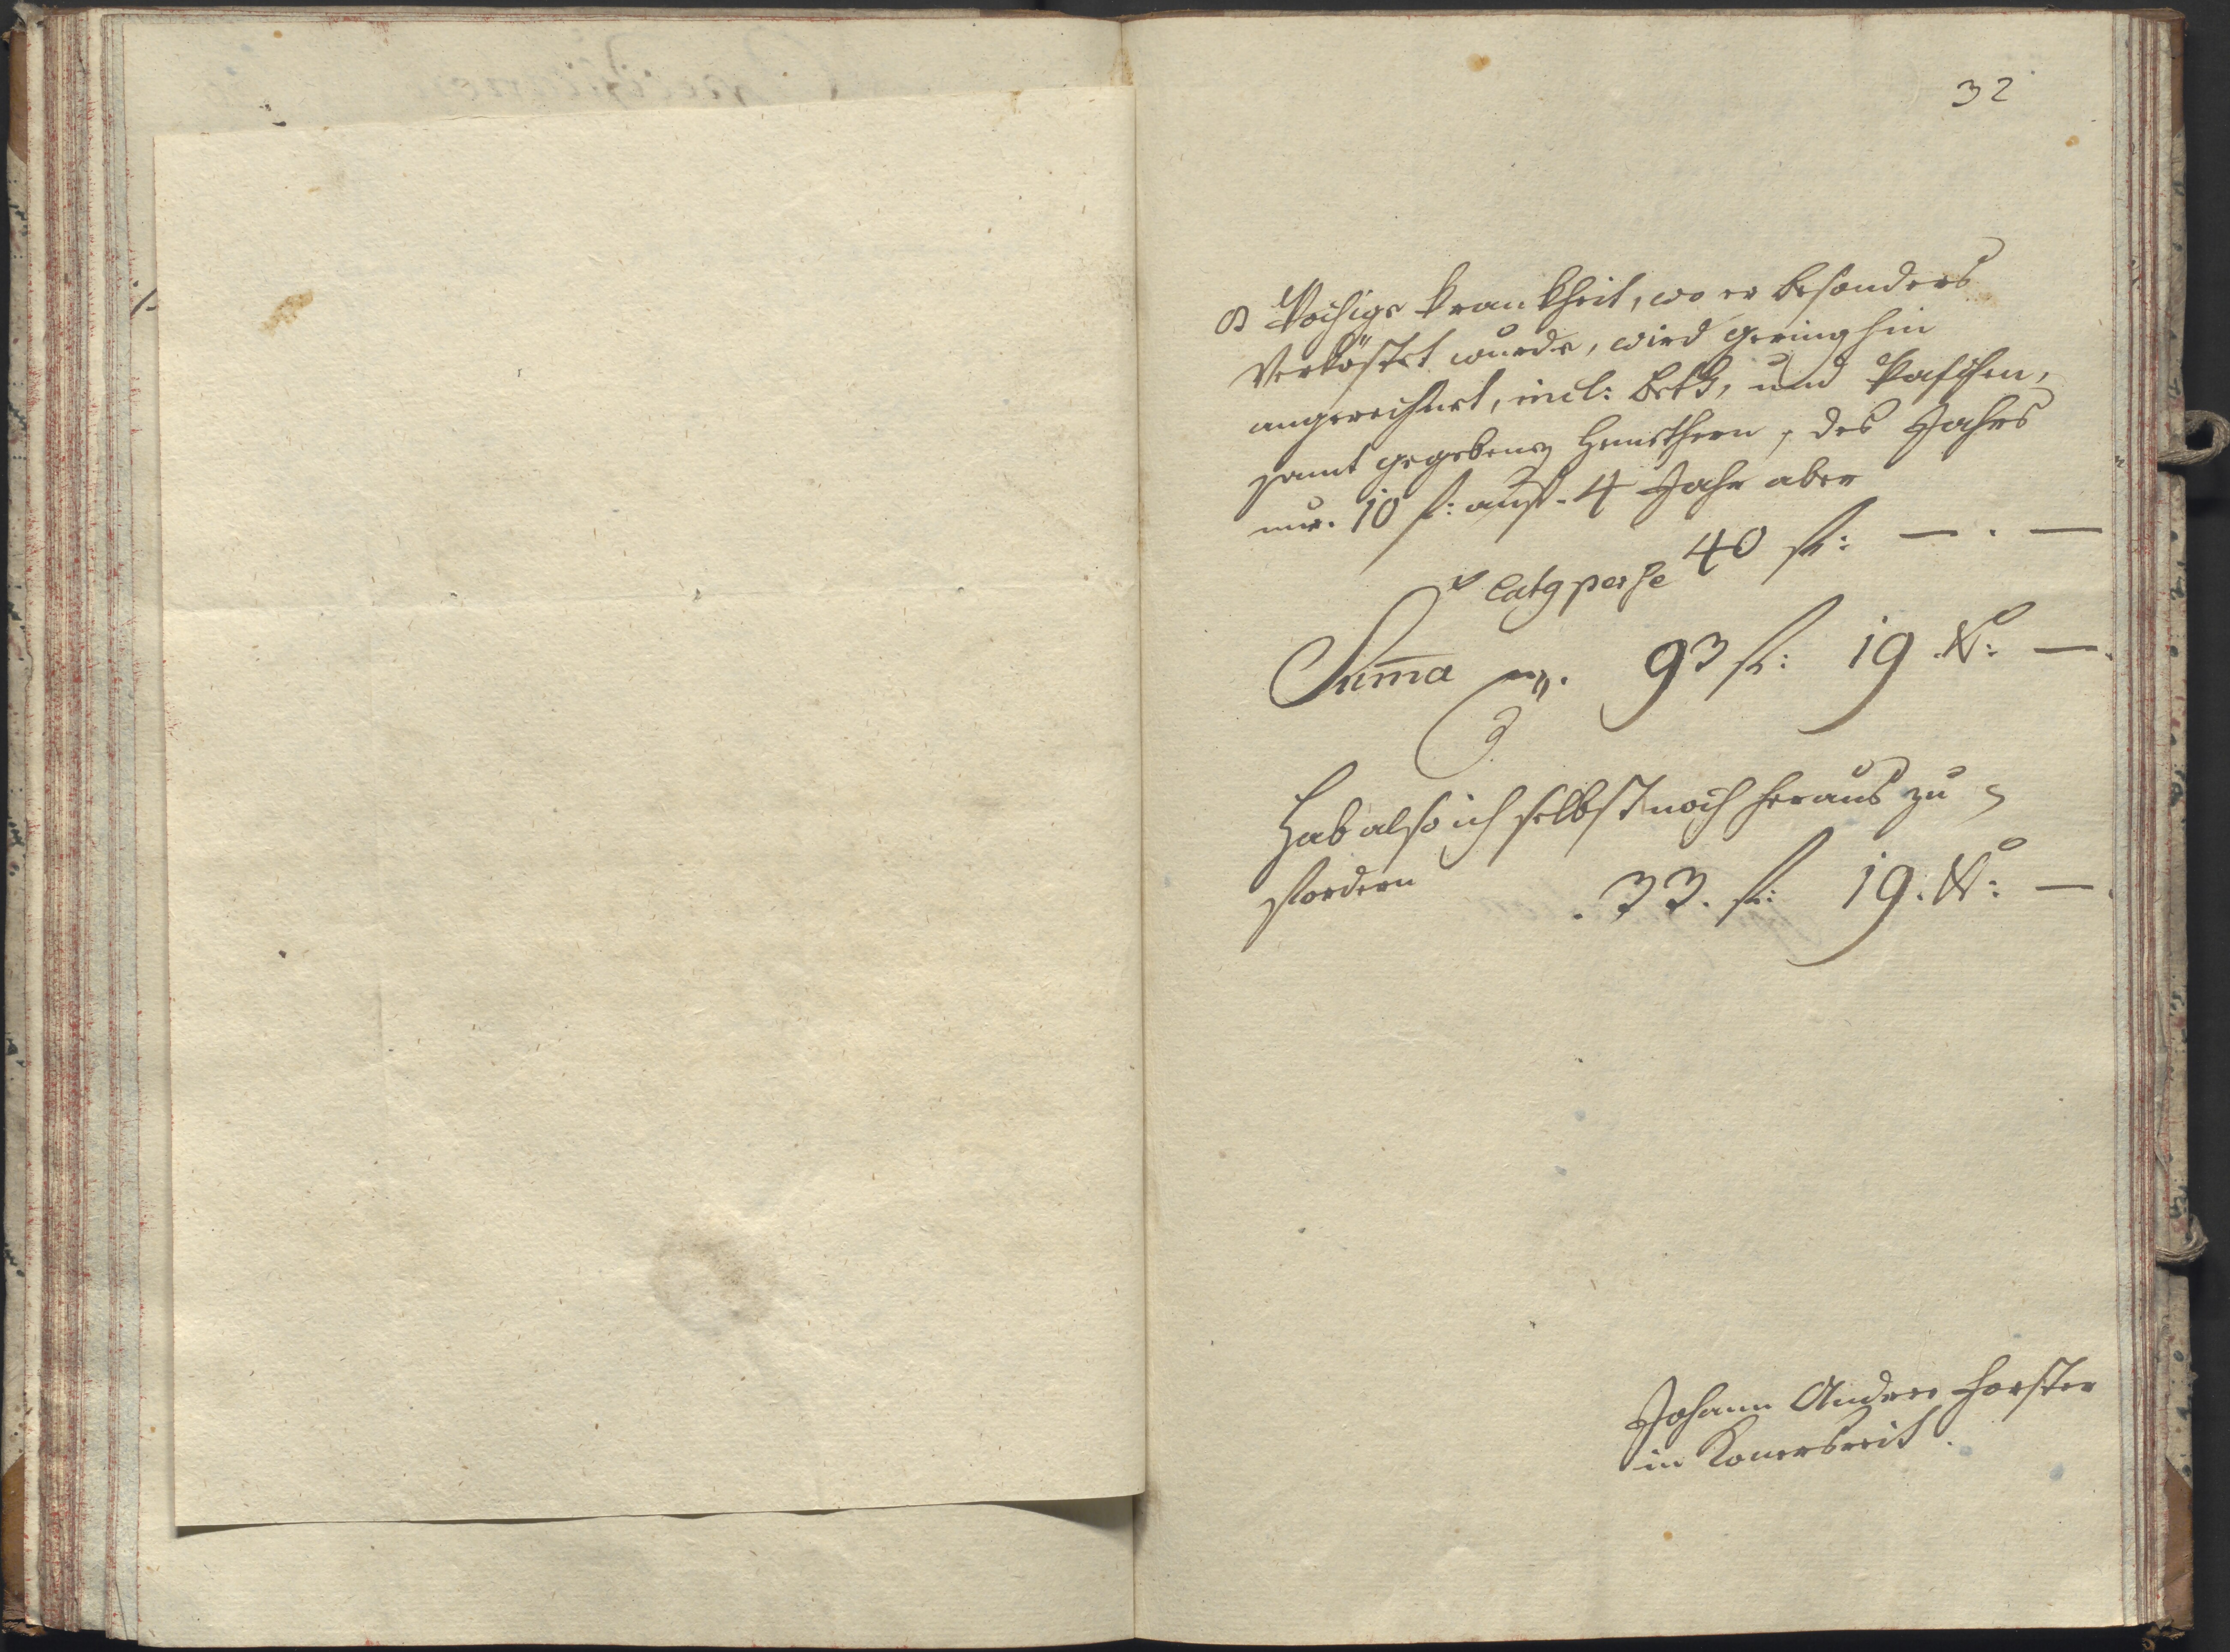 32
8 Wochige Krankheit, wo er besonders
Verköstet wurde, wird geringhin
angerechnet, incl: Beth, und Waschen,
samt gegebenen Hembthern, des Jahrs
nur. 10 f: auf. 4 Jahr aber
40 fl: — . —
Latg per se
Suma 93 fl: 19 Xr: —.
Hab also ich selbst noch heraus zu
fordern .33. fl: 19. Xr: —.
Johann Andree Forster
in